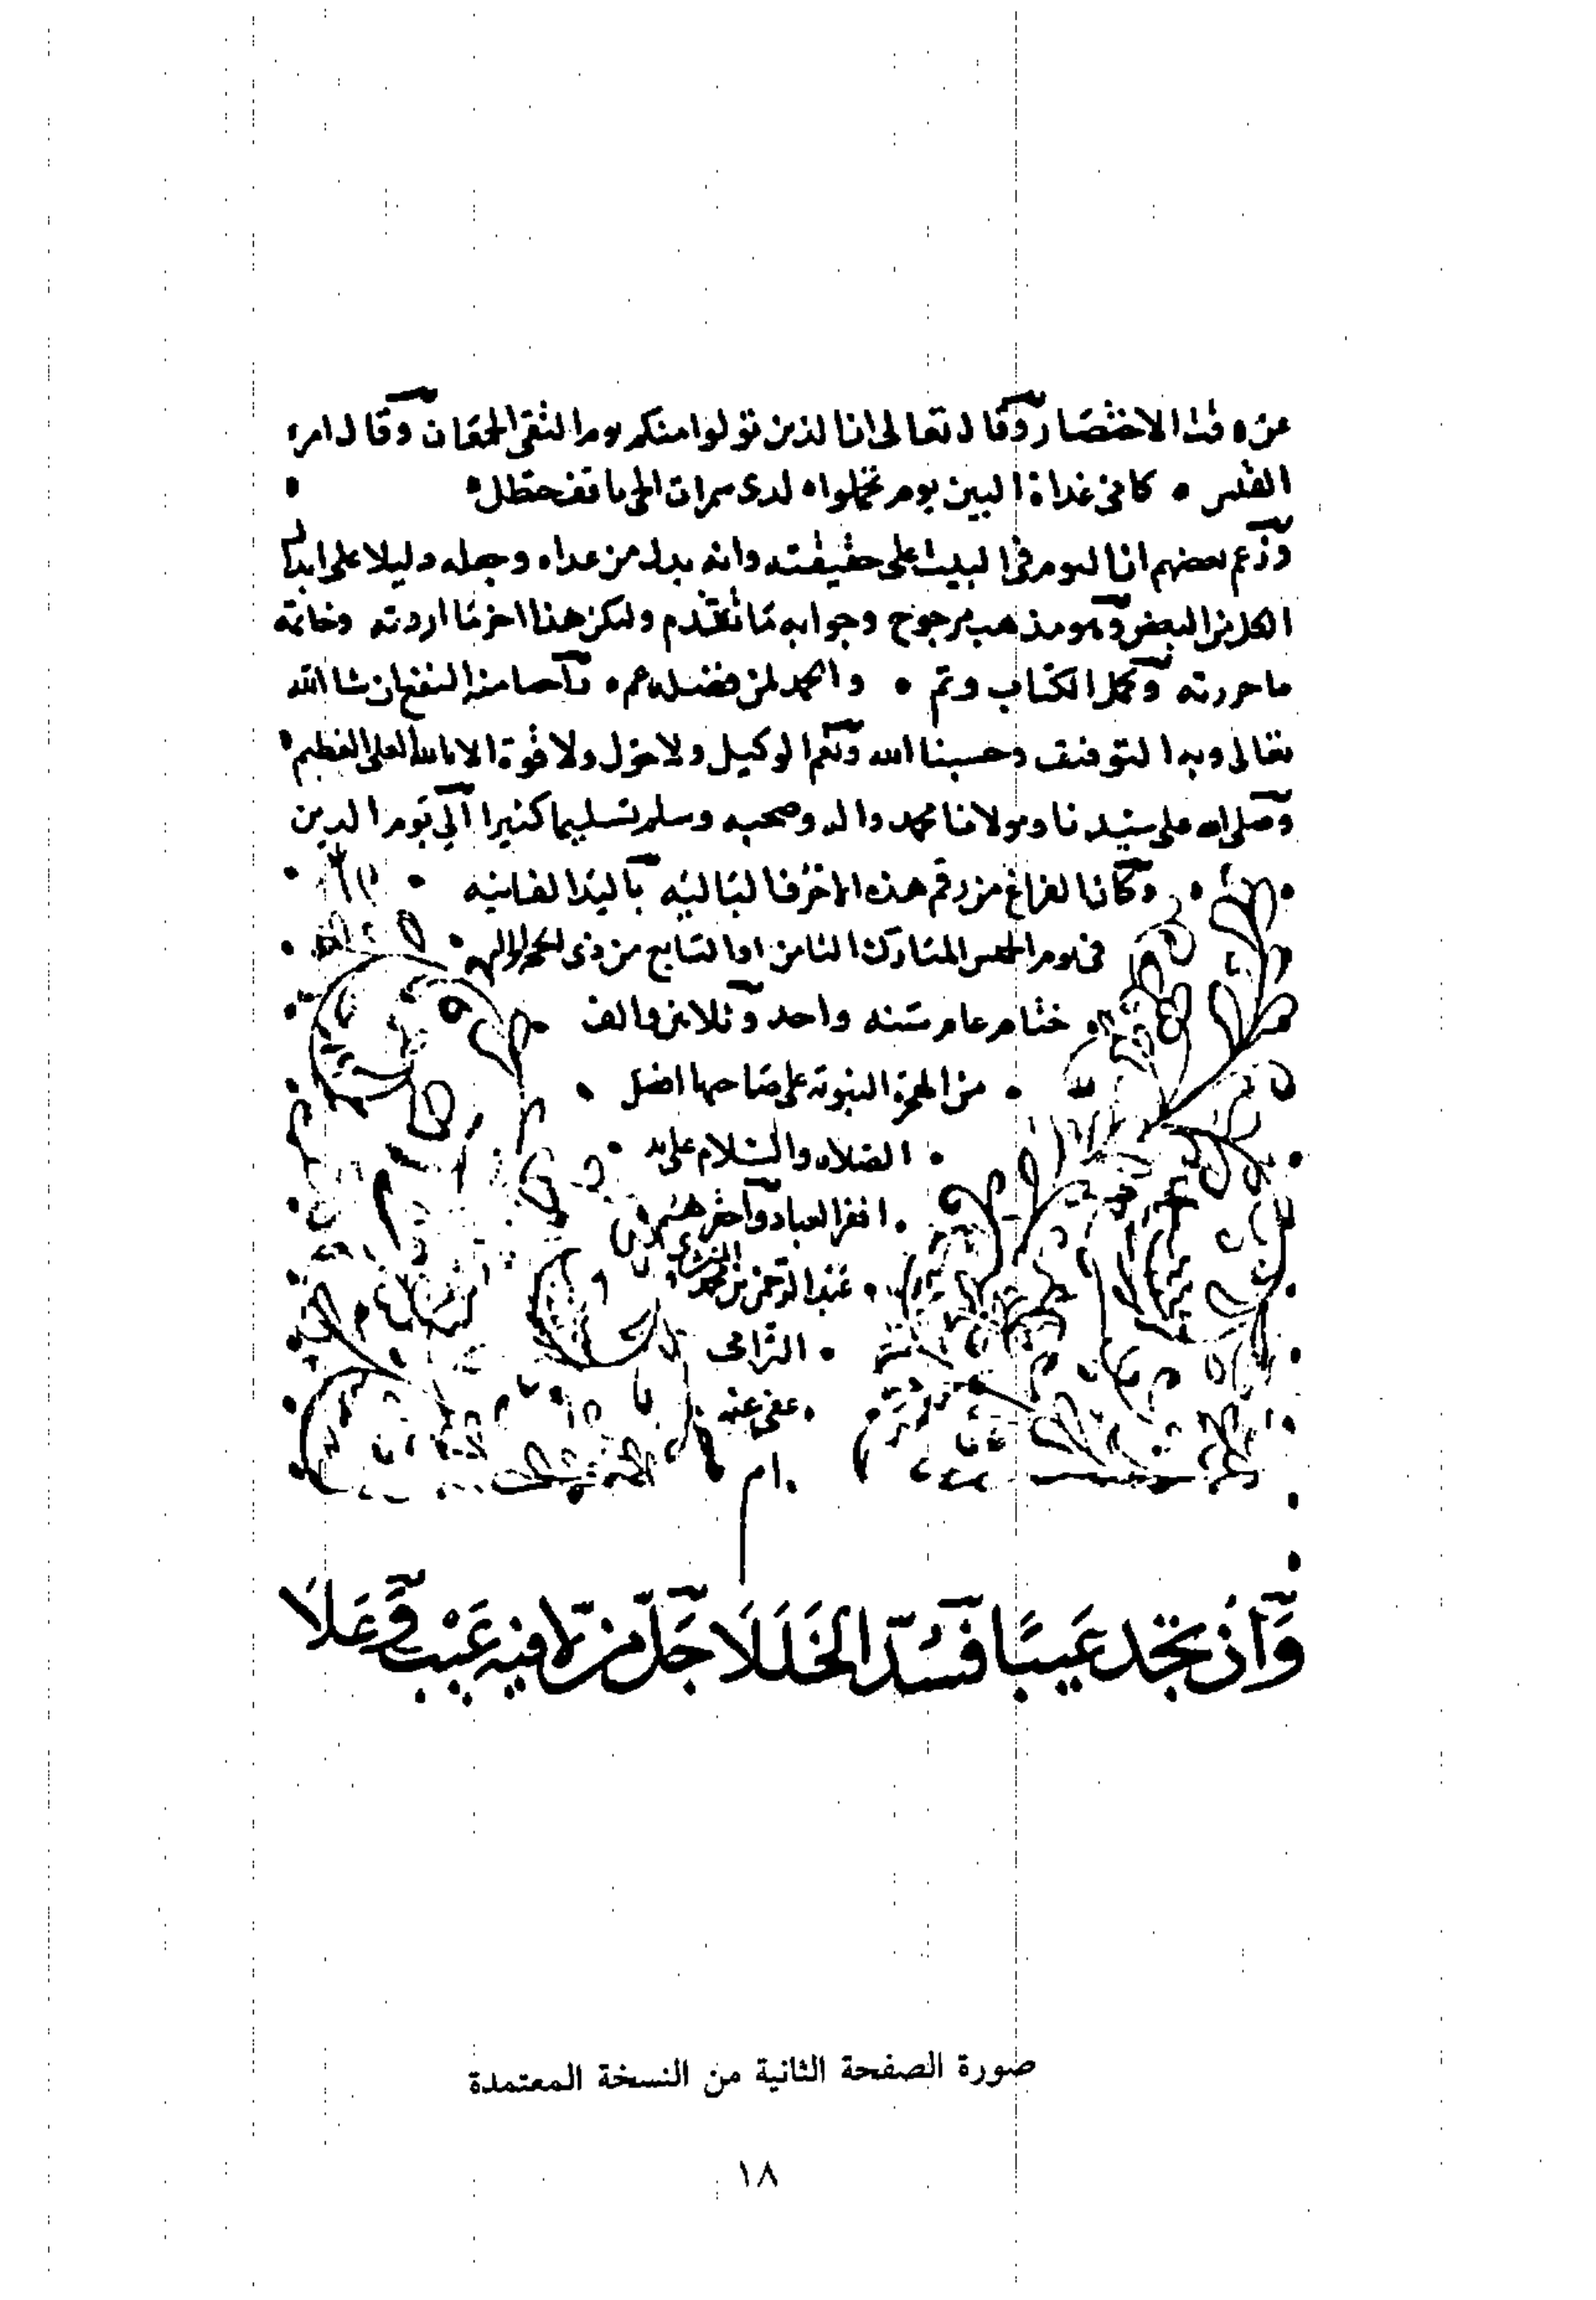 وقال تعالى ان الذين تولوا منكم يوم التقى الجمعان وقال امرء
القيس • كاني غداة البين يوم تحملوا • لدى سمرات الحي ناقف حنظل •
وزعم بعضهم ان اليوم في البيت على حقيقته وانه بدل من غداه وجعله دليلا على ابدال
الكل من البعض وهو مذهب مرجوح وجوابه ما تقدم وليكن هذا اخر ما اردته وخاتمة
ما حررته وكمل الكتاب وتم • والحمد لمن فضله عم • ان شا الله
تعالى وبه التوفيق وحسبنا الله ونعم الوكيل ولا حول ولا قوة الا بالله العلى العظيم •
وصلى الله على سيدنا ومولانا محمد واله وصحبه وسلم تسليما كثيرا الى يوم الدين
• وكان الفراغ من رقم هذه الاحرف الباليه باليد الفانيه •
في يوم الخميس المبارك الثامن او التاسع من ذى الحجة الحرام •
• ختام عام سنه واحد وثلاثين والف •
• من الهجرة النبويه على صاحبها افضل •
• الصلاه والسلام على يد •
• افقر العباد واحقرهم
• عبد الرحمن بن محمد
•
• عفى عنه •
وان تجد عيبا فسد الخللا جل من لا فيه عيب وعلا
صورة الصفحة الثانية من النسخة المعتمدة
١٨